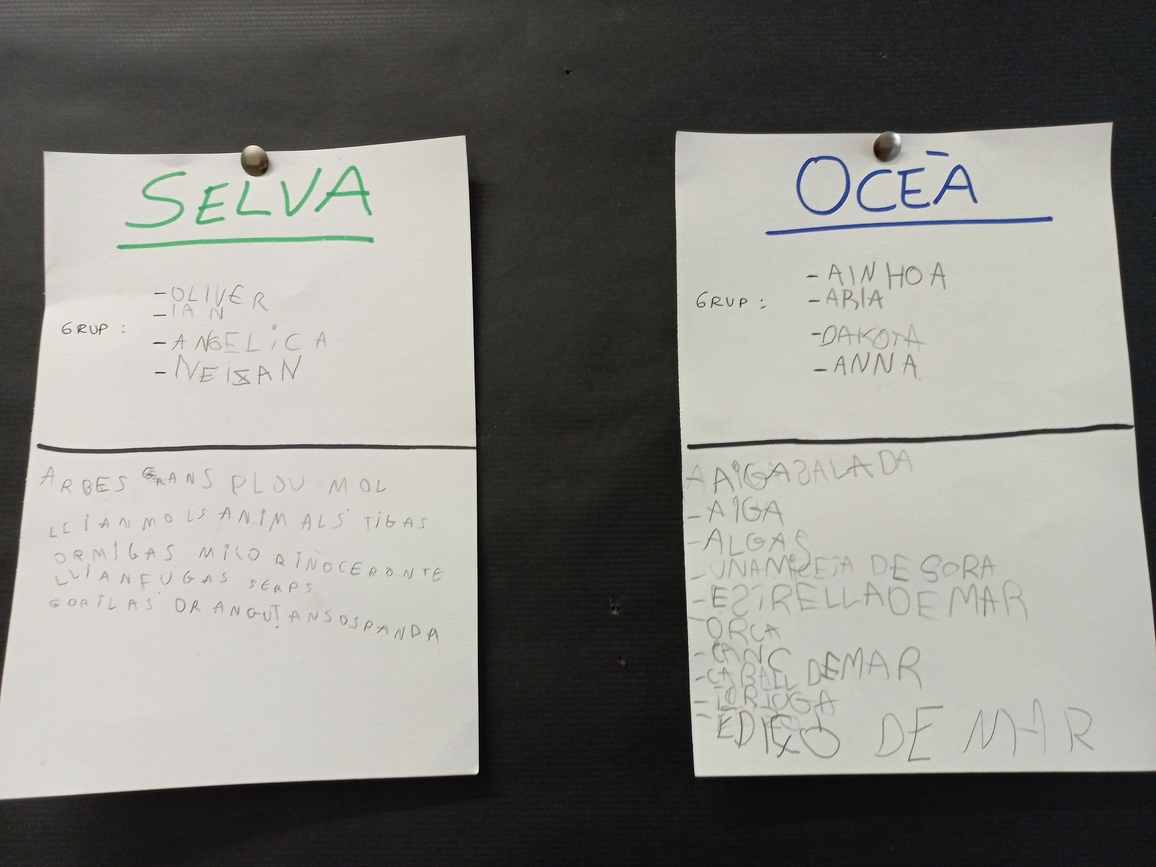 SELVA
GRUP :
- OLIVER
- IAN
- ANGELICA
- NEIZAN
ARBES GRANS PLOU MOL
LLIANMOLS ANIMALS TIGAS
ORMIGAS MICO RINOCERONTE
LLIANFUGAS SERPS
GORILAS ORANGUTANSOSPANDA
OCEÀ
GRUP :
- AINHOA
- ARIA
- DAKOTA
- ANNA
AIGASALADA
- AIGA
- ALGAS
- UNAMICA DE SORA
- ESTRELLADEMAR
ORCA
- CANC
- CABALL DEMAR
- TORTUGA
DE MAR